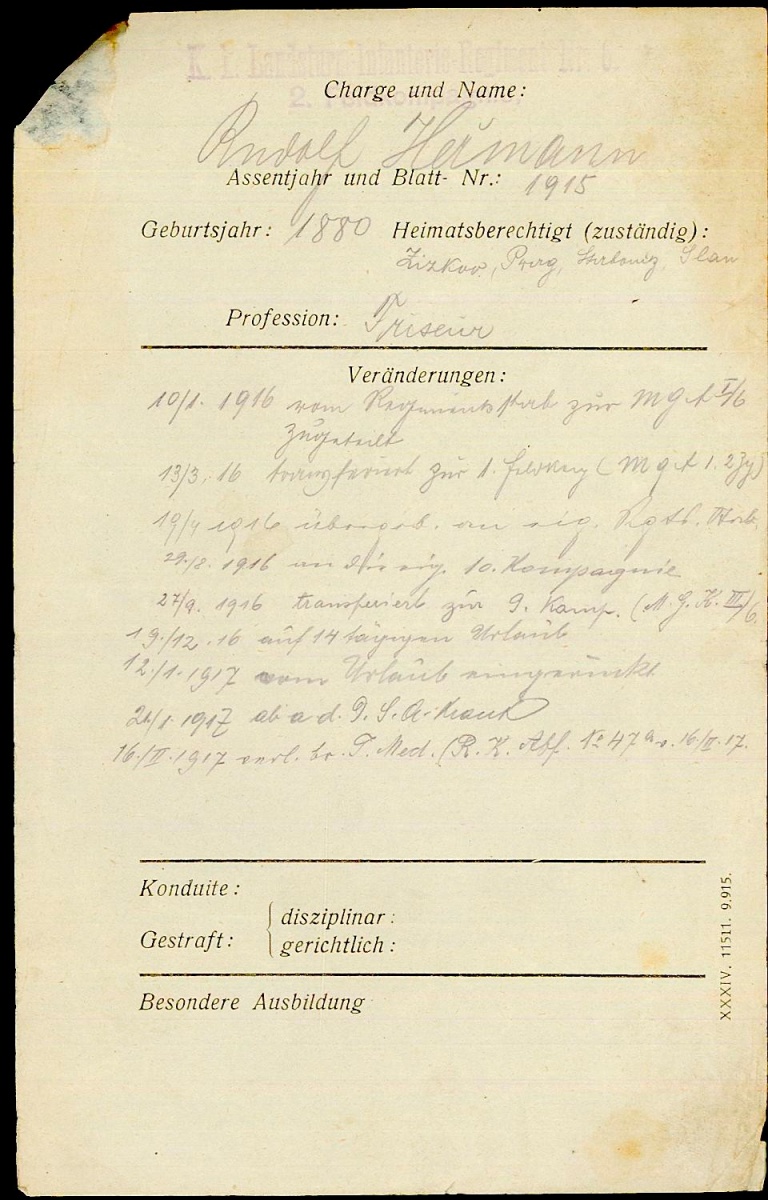 K. k. Landsturm-Infanterie-Regiment Nr. 6.
Charge und Name:
2. Feldkompagnie.
Rudolf Heřmann
Assentjahr und Blatt- Nr.: 1915
Geburtsjahr: 1880 Heimatsberechtigt (zuständig):
Zizkov, Prag, Slan
Profession: Friseur
Veränderungen:
10/1. 1916 vom Regimentsstab zur M G A I/6
zugeteilt
13/3. 16 transferiert zur 1. Feldkomp (M G A 1. Zug)
19/4 1916 überget. an eig. Rgts. Stab.
29./8. 1916 an die eig. 10. Kompagnie
27/9. 1916 transferiert zur 9. Komp. (M. G. K. III/6
19./12. 16 auf 14 tägigen Urlaub
12./1. 1917 vom Urlaub eingerückt
21/1. 1917 ab a d. D. S. A. krank
16./II. 1917 verl. br. T. Med. (R. K. Abf. No 47 a v. 16/II. 17.
Konduite :
Gestraft : disziplinar :
gerichtlich :
Besondere Ausbildung
XXXIV. 11511. 9.915.